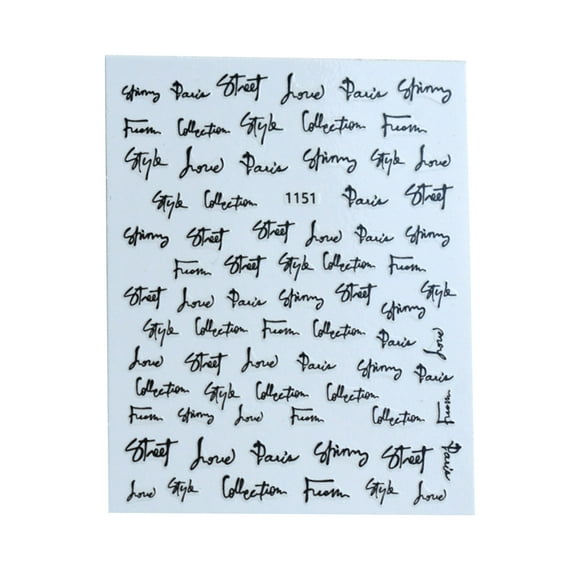 Spinny Paris Street Love Paris Spinny
From Collection Style Collection From
Style Love Paris Spinny Style Love
Style Collection 1151 Paris Street
Spinny Street Street Love Paris Spinny
From Street Style Collection From
Street Love Paris Spinny Street Spinny Style
Style Collection From Collection Paris Love
Love Street Love Paris Spinny Paris
Collection Style Collection Collection
From Spinny Love From Collection From
Street Love Paris Spinny Street Paris
Love Style Collection From Style Love